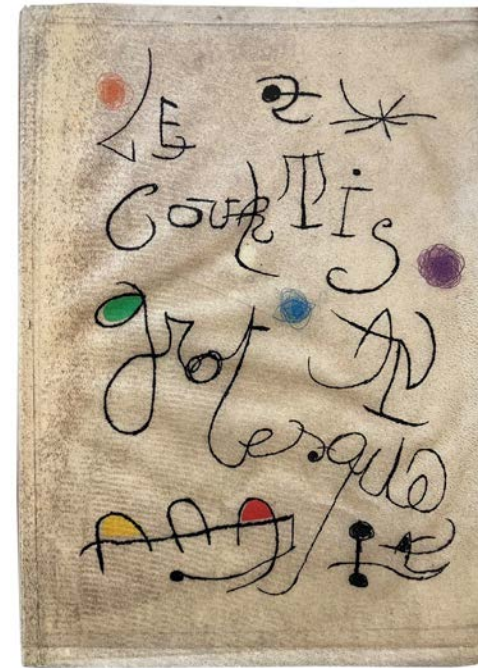 LE
CouRTis
grot AN
esque